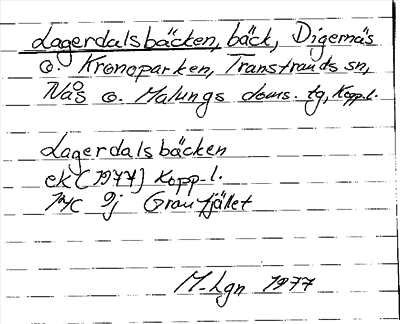 Lagerdalsbäcken, bäck, Digernäs
o. Kronoparken, Transtrands sn,
Nås o. Malungs doms. tg, Kopp.l.
Lagerdalsbäcken
ek (1977) Kopp.l.
14C 9j Granfjället
M. Lgn 1977